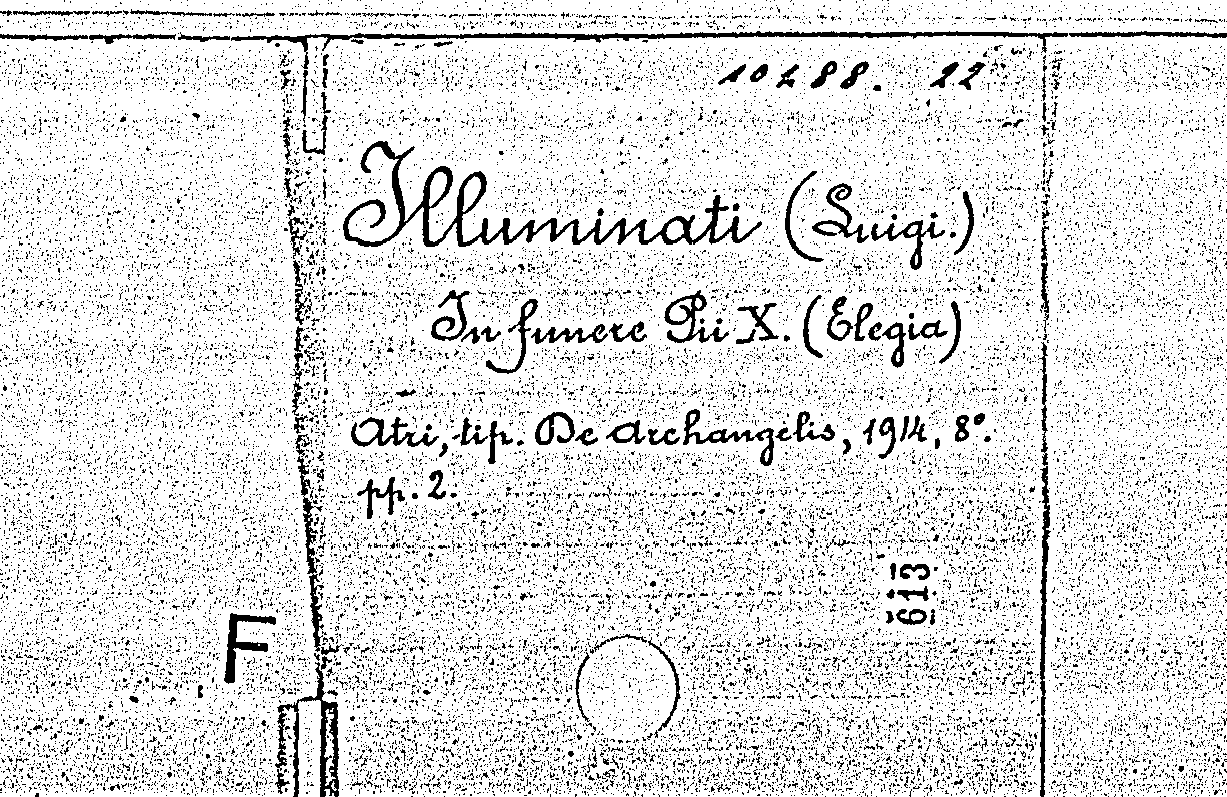 10288. 22
Illuminati (Luigi.)
In funere Pii X. (Elegia)
Atri, tip. De Archangelis, 1914, 8°.
pp. 2.
613
F